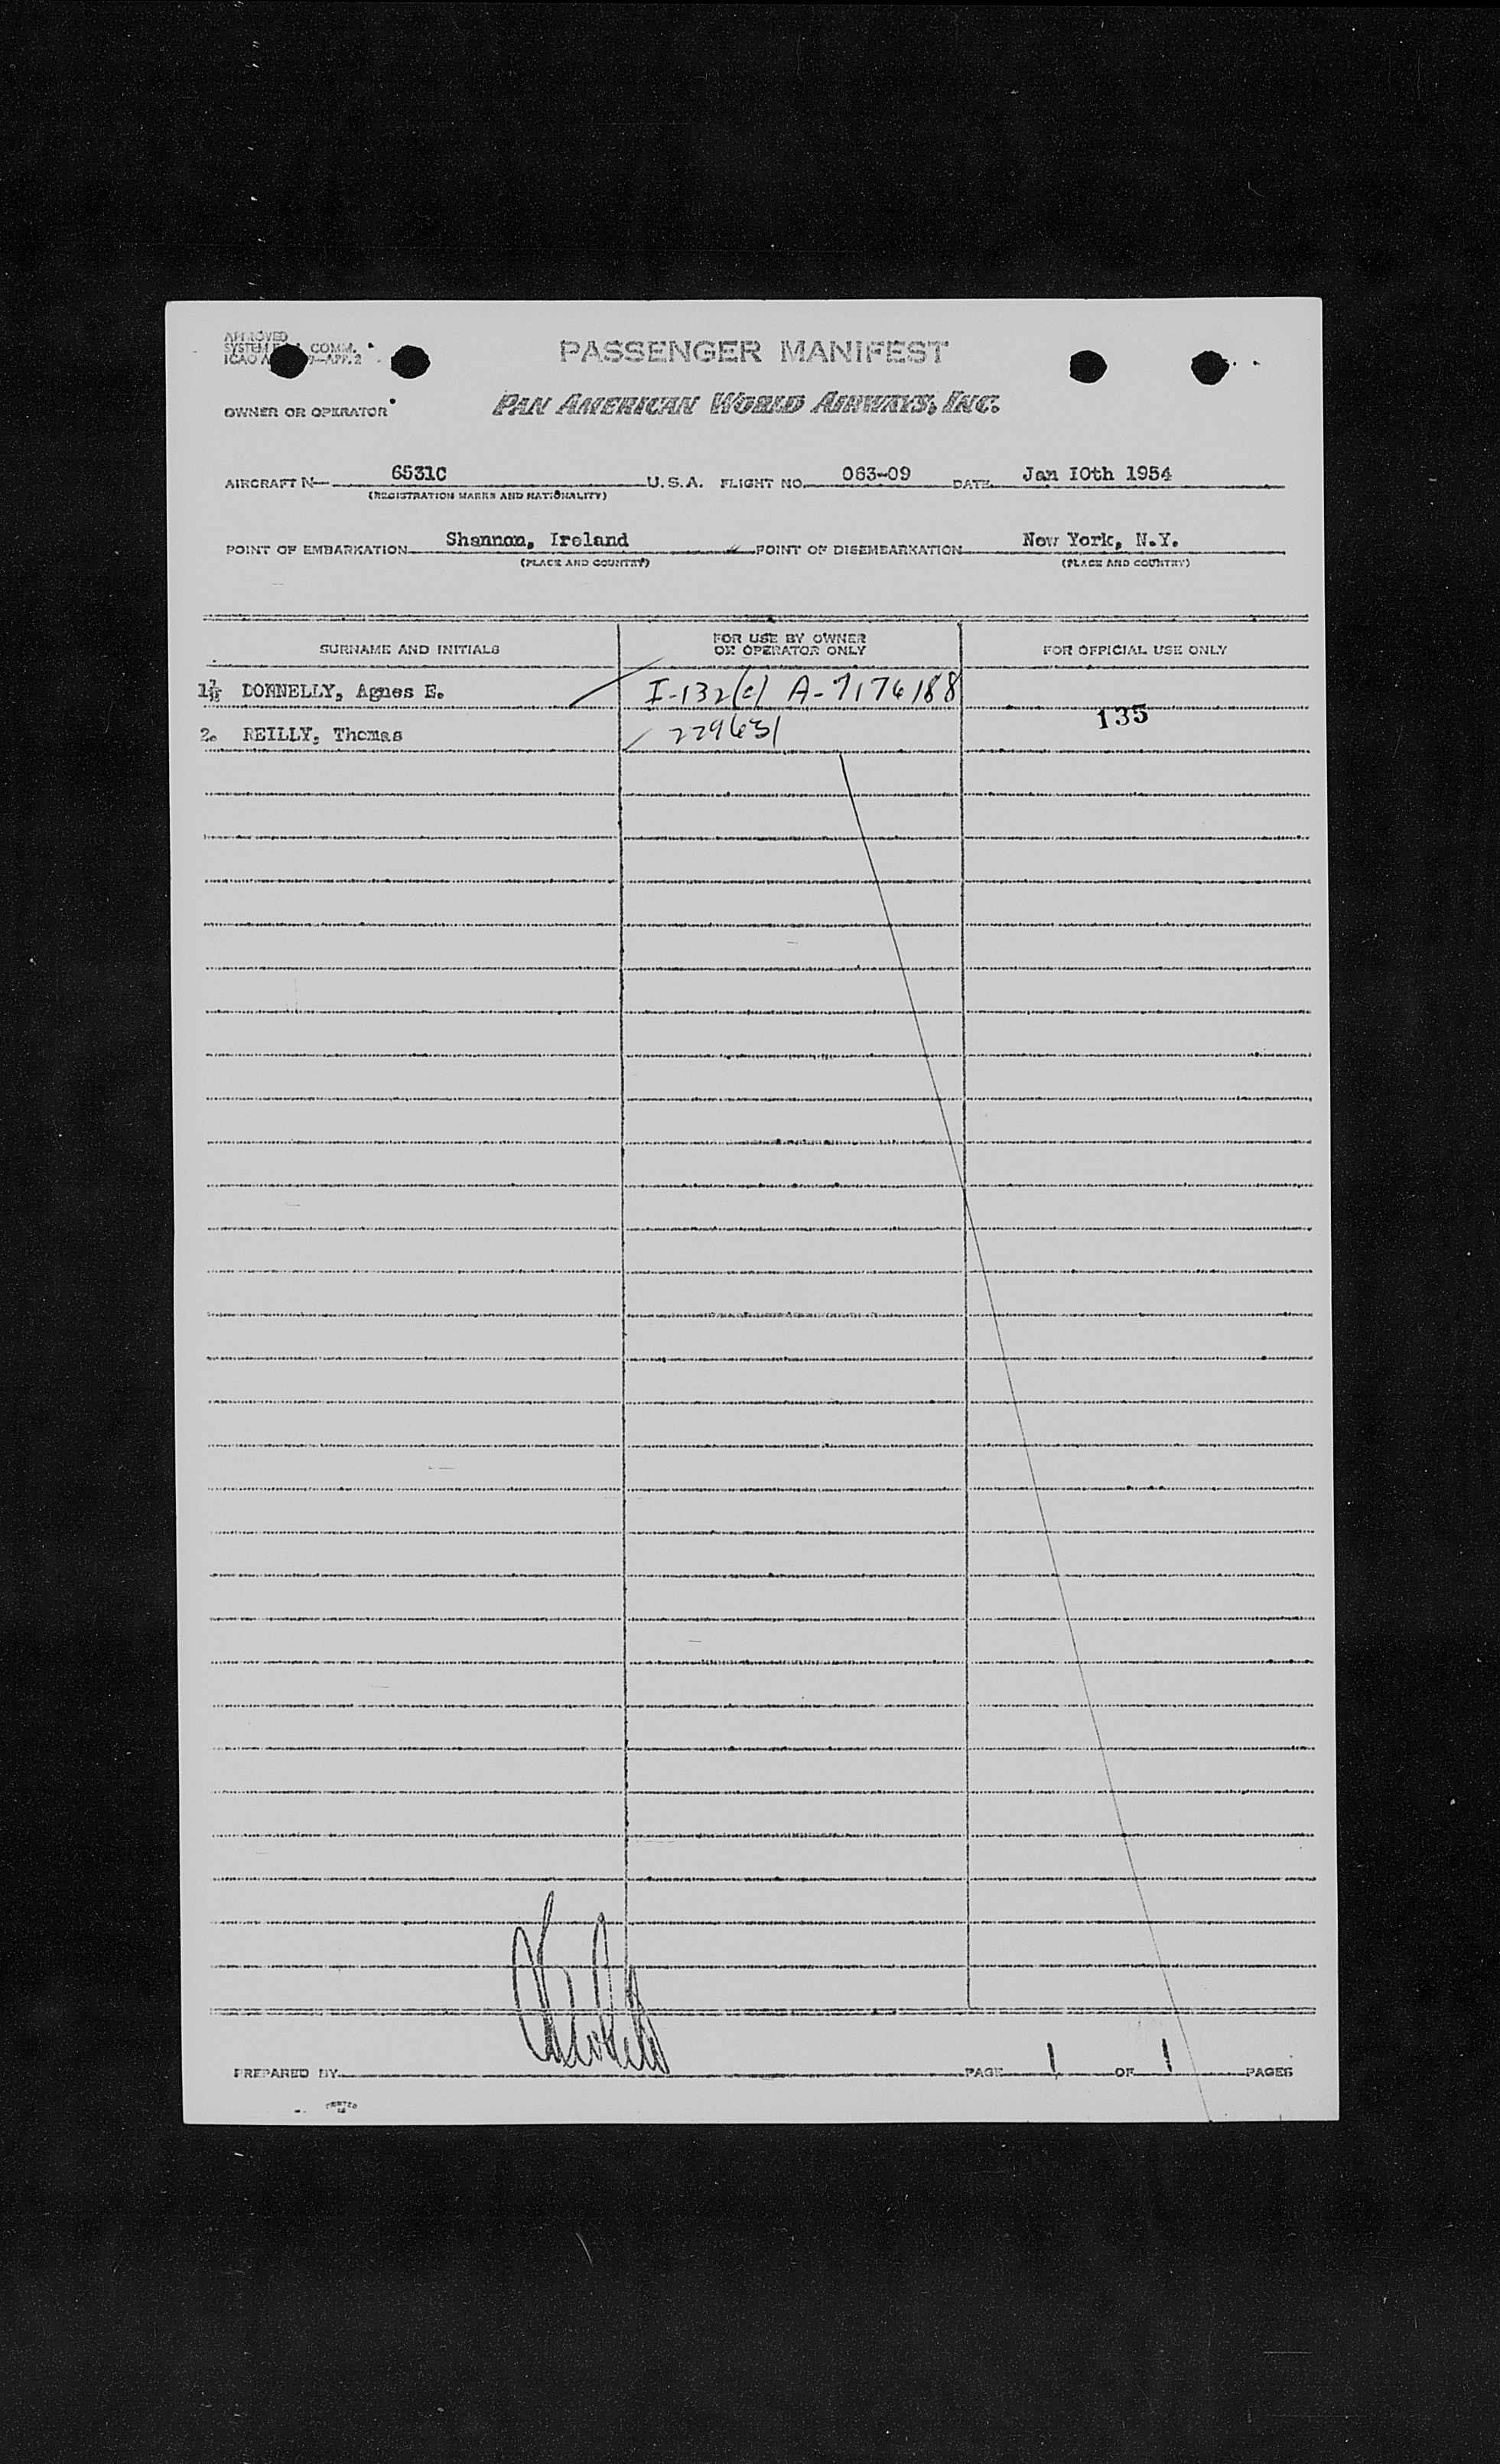 APPROVED
SYSTEM COMM.
ICAO A 9-APP. 2
PASSENGER MANIFEST
OWNER OR OPERATOR
PAN AMERICAN WORLD AIRWAYS, INC.
AIRCRAFT N— 6531C U.S.A. FLIGHT NO. 063-09 DATE Jan I0th 1954
(REGISTRATION MARKS AND NATIONALITY)
POINT OF EMBARKATION Shannon, Ireland POINT OF DISEMBARKATION New York, N.Y.
(PLACE AND COUNTRY) (PLACE AND COUNTRY)
SURNAME AND INITIALS FOR USE BY OWNER OR OPERATOR ONLY FOR OFFICIAL USE ONLY
1. DONNELLY, Agnes E. I-132(c) A-7174188
135
2. REILLY, Thomas 229631
PREPARED BY PAGE 1 OF 1 PAGES